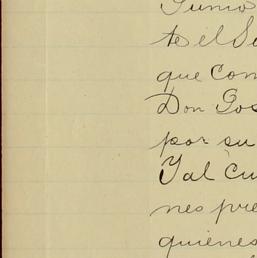 Junio
te el Su
que com
Don Jos
por su
Tal cu
nes pre
quienes